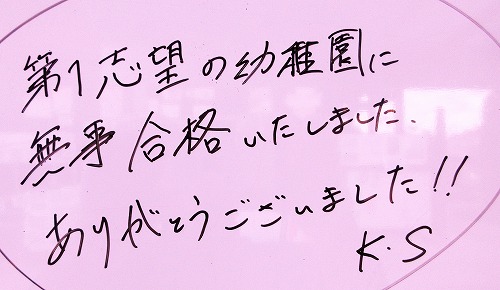 第1志望の幼稚園に
無事合格いたしました.
ありがとうございました!!
K.S